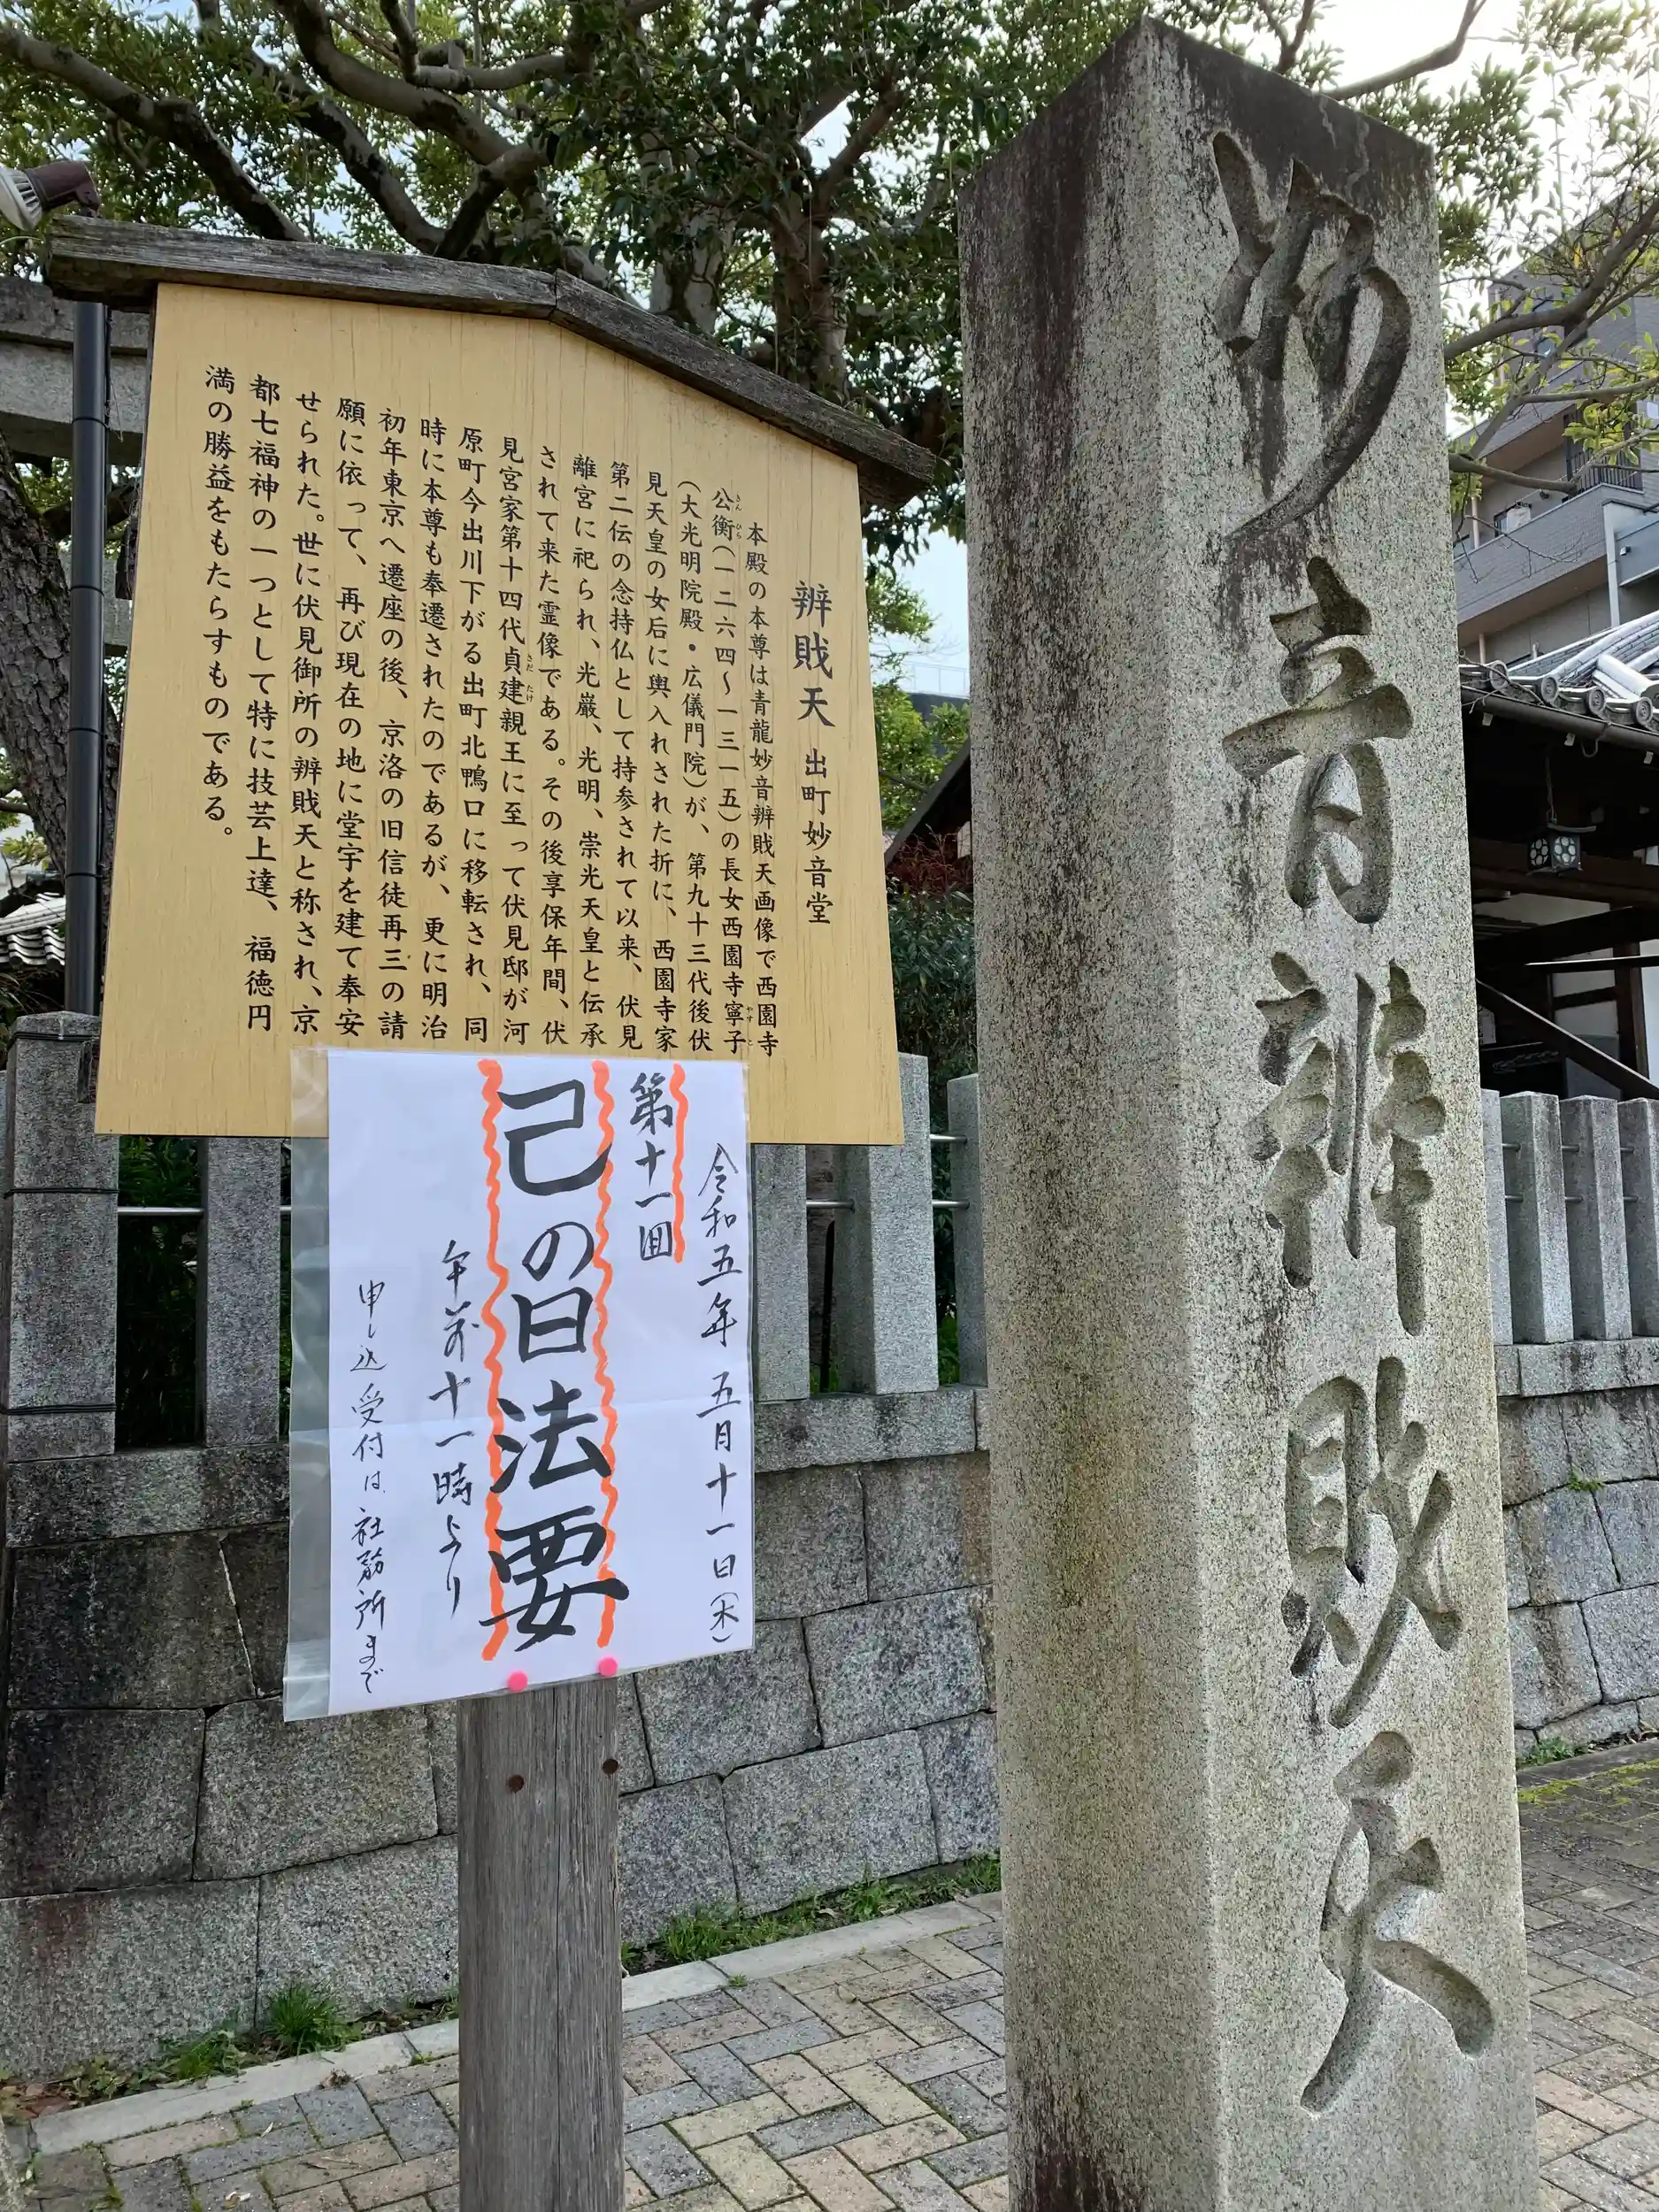 妙音辨財天
辨戝天 出町妙音堂
本殿の本尊は青龍妙音辨戝天画像で西園寺
公衡(一二六四〜一三一五)の長女西園寺寧子
きん ひら
やす こ
(大光明院殿・広儀門院)が、第九十三代後伏
見天皇の女后に輿入れされた折に、西園寺家
第二伝の念持仏として持参されて以来、伏見
離宮に祀られ、光厳、光明、崇光天皇と伝承
されて来た霊像である。その後享保年間、伏
見宮家第十四代貞建親王に至って伏見邸が河
さだ たけ
原町今出川下がる出町北鴨口に移転され、同
時に本尊も奉遷されたのであるが、更に明治
初年東京へ遷座の後、京洛の旧信徒再三の請
願に依って、再び現在の地に堂宇を建て奉安
せられた。世に伏見御所の辨戝天と称され、京
都七福神の一つとして特に技芸上達、福徳円
満の勝益をもたらすものである。
令和五年五月十一日(木)
第十一回
己の日法要
午前十一時より
申し込受付は社務所まで